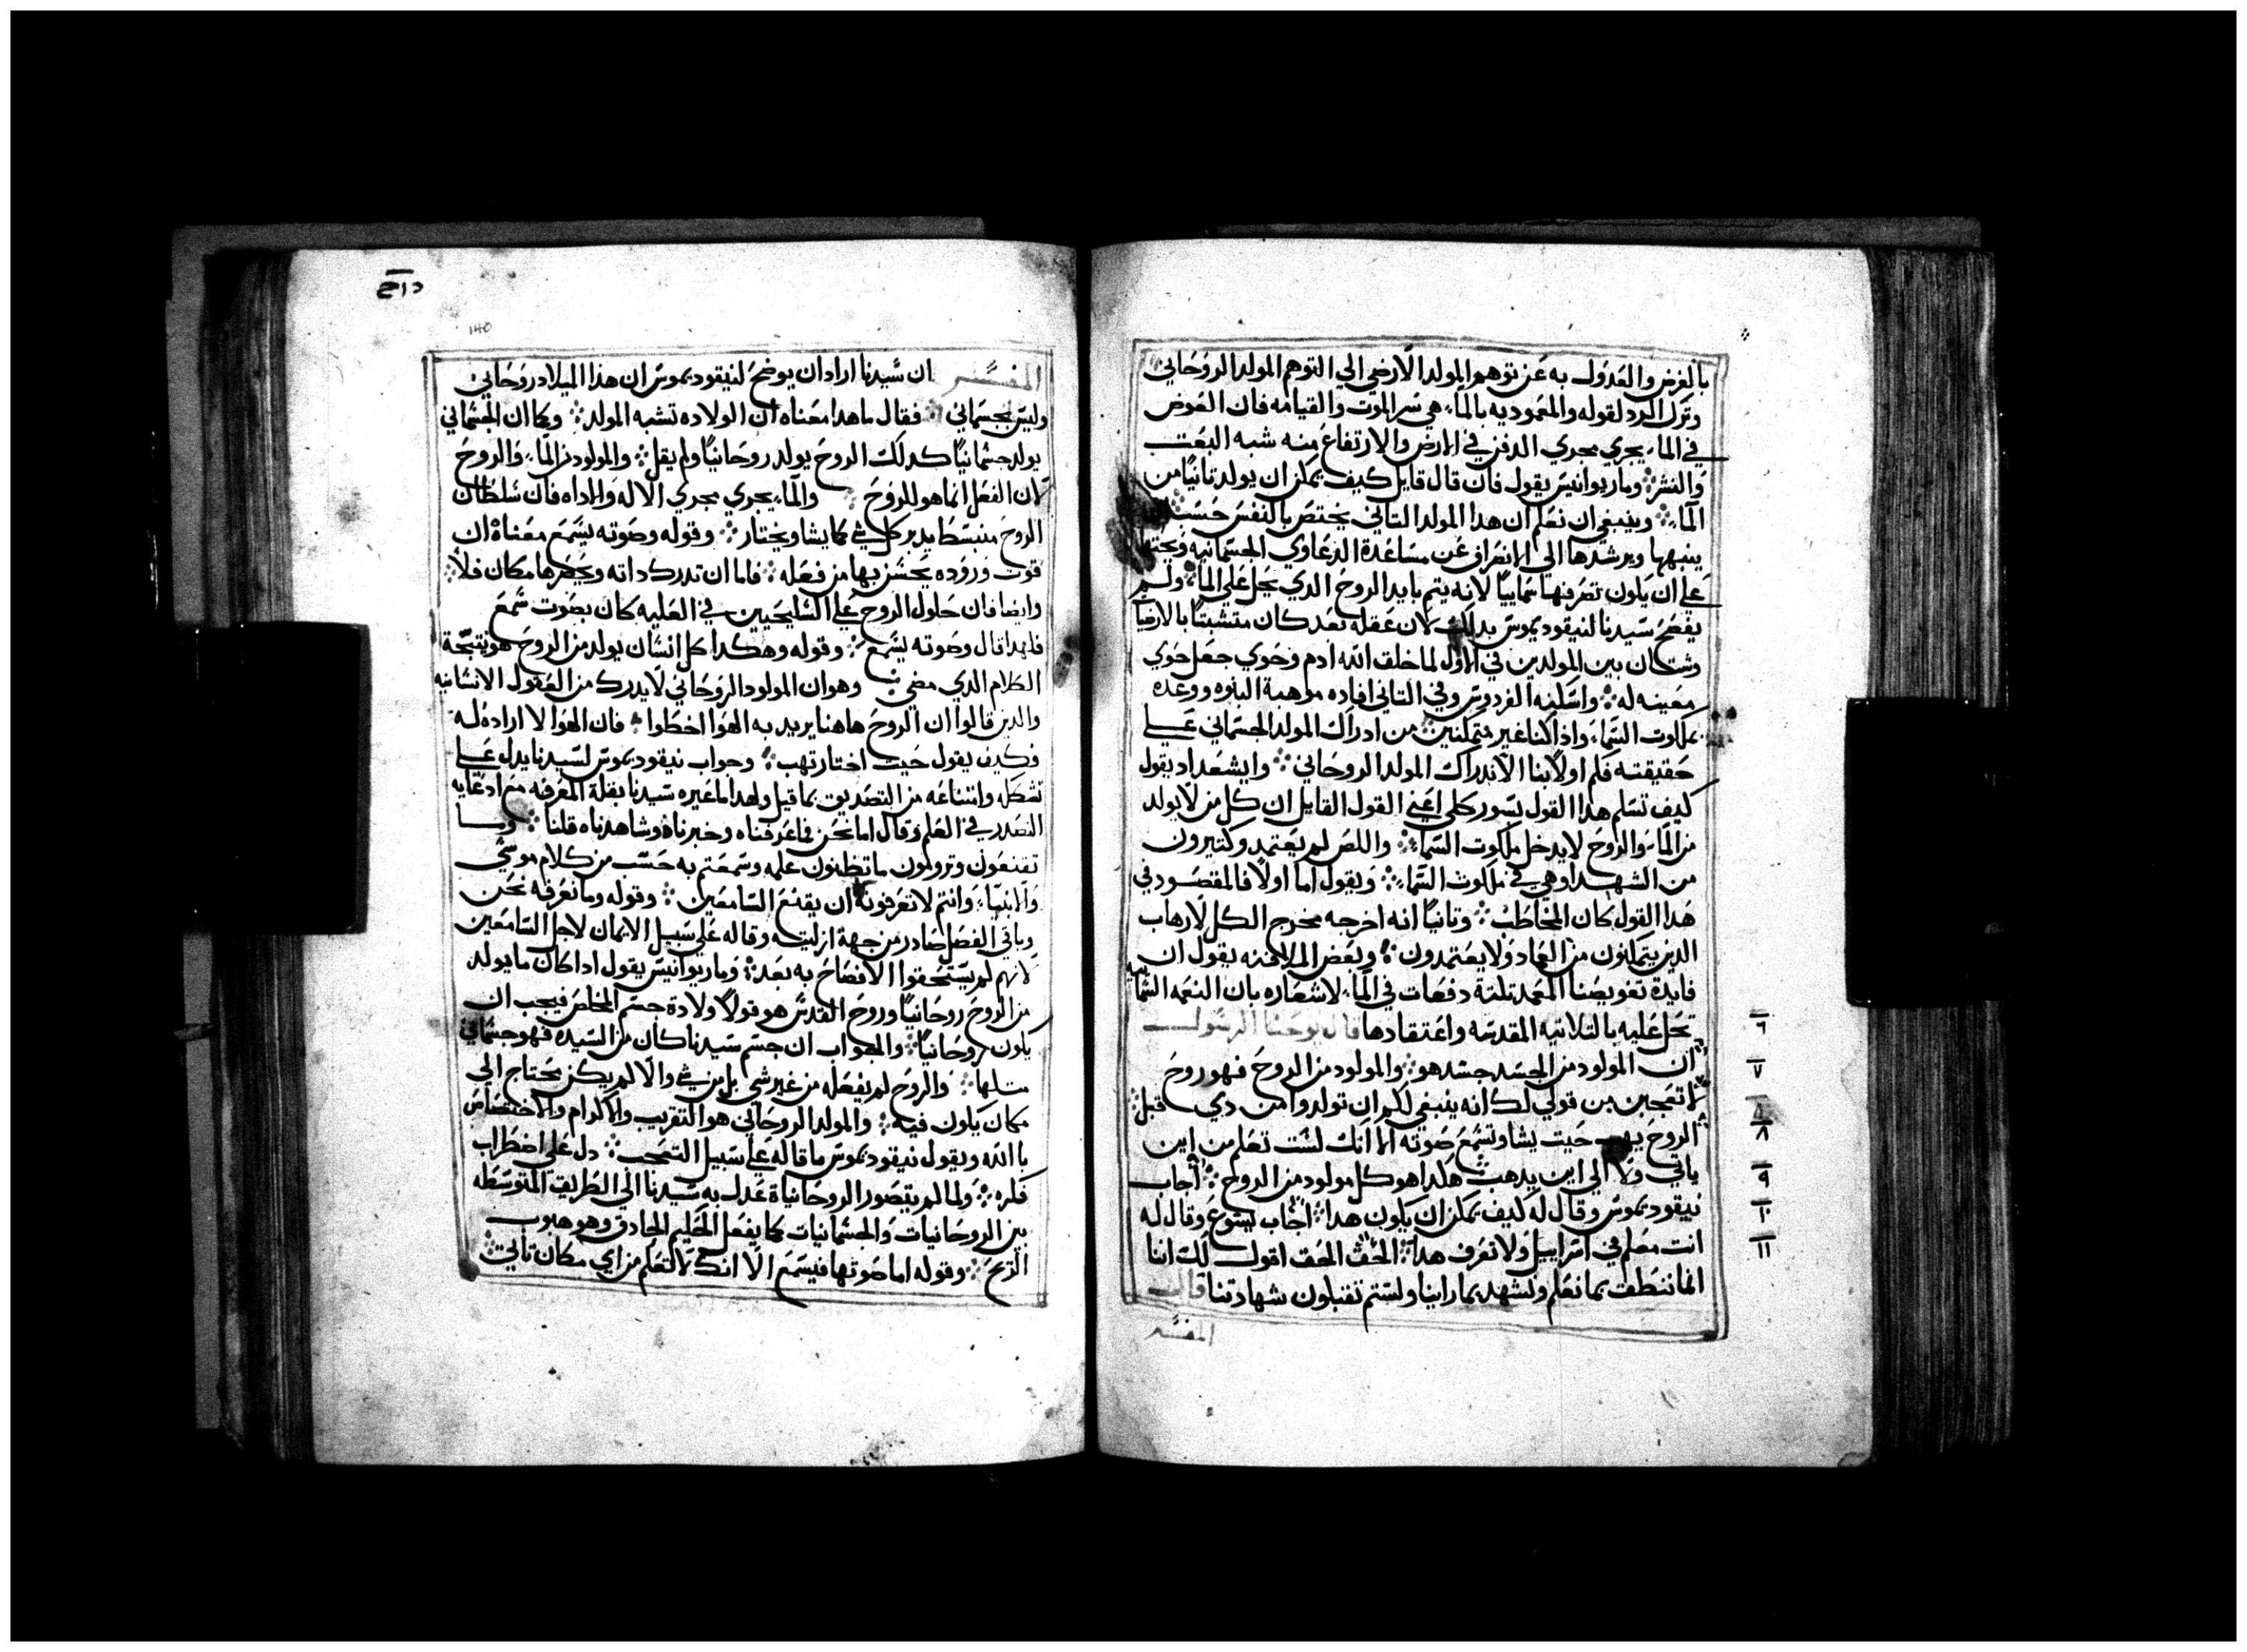 بالغرض والعدول به عن توهم المولد الارضي الي التوهم المولد الروحاني
وترك البرد لقوله والمعموديه بالماء هي سر الموت والقيامه فان الغوص
في الماء يجري مجري الدفن في الارض والارتفاع منه شبه البعت
والنشر ومار يوانيس يقول فان قال قايل كيف يمكن ان يولد تانيا من
الماء وينبغي ان نعلم ان هدا المولد التاني يختص بالنفس حسب
ينبهها ويرشدها الي الانعراف عن مساعدة الدعاوي الجسمانيه ويحتها
علي ان يكون تصرفها سماييا لانه يتم بايد الروح الدي يحل علي الماء ولم
يفصح سيدنا لنيقوديموس بدلك لان عقله بعد كان متشبتا بالارضيا
وشتان بين المولدين في الاول لما خلق الله ادم وحوي جعل حوي
معينه له واسكنه الفردوس وفي التاني افاده موهبة البنوه ووعده
بملكوت السماء وادا كنا غير متمكنين من ادراك المولد الجسماني علي
حقيقته فكم اولا بنا الا ندرك المولد الروحاني وايشعداد يقول
كيف تسلم هدا القول بسور كلي اعني القول القايل ان كل من لا يولد
من الماء والروح لا يدخل ملكوت السماء واللص لم يعتمد وكتيرون
من الشهدا وهي في ملكوت السماء ويقول اما اولا فالمقصود في
هدا القول كان المخاطب وتانيا انه اخرجه مخرج الكل لارهاب
الدين يتمكنون من العماد ولا يعتمدون وبعض الملافنه يقول ان
فايدة تغويصنا المعمد تلتة دفعات في الماء لاشعاره بان النعمه السماييه
تحل عليه بالتلاتيه المقدسه واعتقادها قال يوحنا الرسول
٦
ان المولود من الجسد جسد هو والمولود من الروح فهو روح
٧
لا تعجبن من قولي لك انه ينبغي لكم ان تولدوا من دي قبل
٨
الروح يهب حيت يشا وتسمع صوته الا انك لست تعلم من اين
ياتي ولا الي اين يدهب هكدا هو كل مولود من الروح اجاب
٩
نيقوديموس وقال له كيف يمكن ان يكون هدا اجاب يسوع وقال له
١٠
انت معلم في اسراييل ولا تعرف هدا الحق الحق اقول لك اننا
١١
انما ننطق بما نعلم ونشهد بما راينا ولستم تقبلون شهادتنا قال
المفسر
140
المفسر ان سيدنا اراد ان يوضح لنيقوديموس ان هدا الميلاد روحاني
وليس بجسماني فقال ما هدا معناه ان الولاده تشبه المولد وكما ان الجسماني
يولد جسمانيا كدلك الروح يولد روحانيا ولم يقل والمولود من الماء والروح
لان الفعل انما هو للروح والماء يجري مجري الاله والاداه فان سلطان
الروح منبسطا يدبر كل شي كما يشا ويختار وقوله وصوته يسمع معناه ان
قوت وروده يحسن بها من فعله فاما ان تدرك داته ويحصرها مكان فلا
وايضا فان حلول الروح علي السليحيين في العليه كان بصوت سمع
فلهدا قال وصوته يسمع وقوله وهكدا كل انسان يولد من الروح هو نتيجة
الكلام الدي مضي وهو ان المولود الروحاني لا يدرك من العقول الانسانيه
والدين قالوا ان الروح هاهنا يريد به الهوا اخطوا فان الهوا لا اراده له
فكيف يقول حيت اختار تهب وجواب نيقوديموس لسيدنا يدل علي
تشككه وامتناعه من التصديق بما قيل ولهدا ما غيره سيدنا بقلة المعرفه مع ادعايه
التصدر في العلم وقال اما نحن فما عرفناه وخبرناه وشاهدناه قلنا وسا
تقنعون وترومون ما تظنون علمه وسمعتم به حسب من كلام موسي
والانبيا وانتم لا تعرفونه ان يقنع السامعين وقوله وما نعرفه نحن
وباقي الفصل صادر من جهة ازليته وقاله علي سبيل الايمان لاجل السامعين
لانهم لم يستحقوا الافصاح به بعد ومار يوانيس يقول ادا كان ما يولد
من الروح روحانيا وروح القدس هو قولا ولادة جسم المخلص فيجب ان
يكون روحانيا والجواب ان جسم سيدنا كان من السيده فهو جسماني
متلها والروح لم يفعله من غير شي بل من شي والا لم يكن يحتاج الي
مكان يكون فيه والمولد الروحاني هو التقريب والاكرام والاختصاص
بالله ويقول نيقوديموس ما قاله علي سبيل التعجب دل علي اضطراب
فكره ولما لم يتصور الروحانياة عدل به سيدنا الي الطريق المتوسطه
بين الروحانيات والجسمانيات كما يفعل الحكيم الحادق وهو هبوب
الريح وقوله اما صوتها فيسمع الا انك لا تعلم من اي مكان تاتي